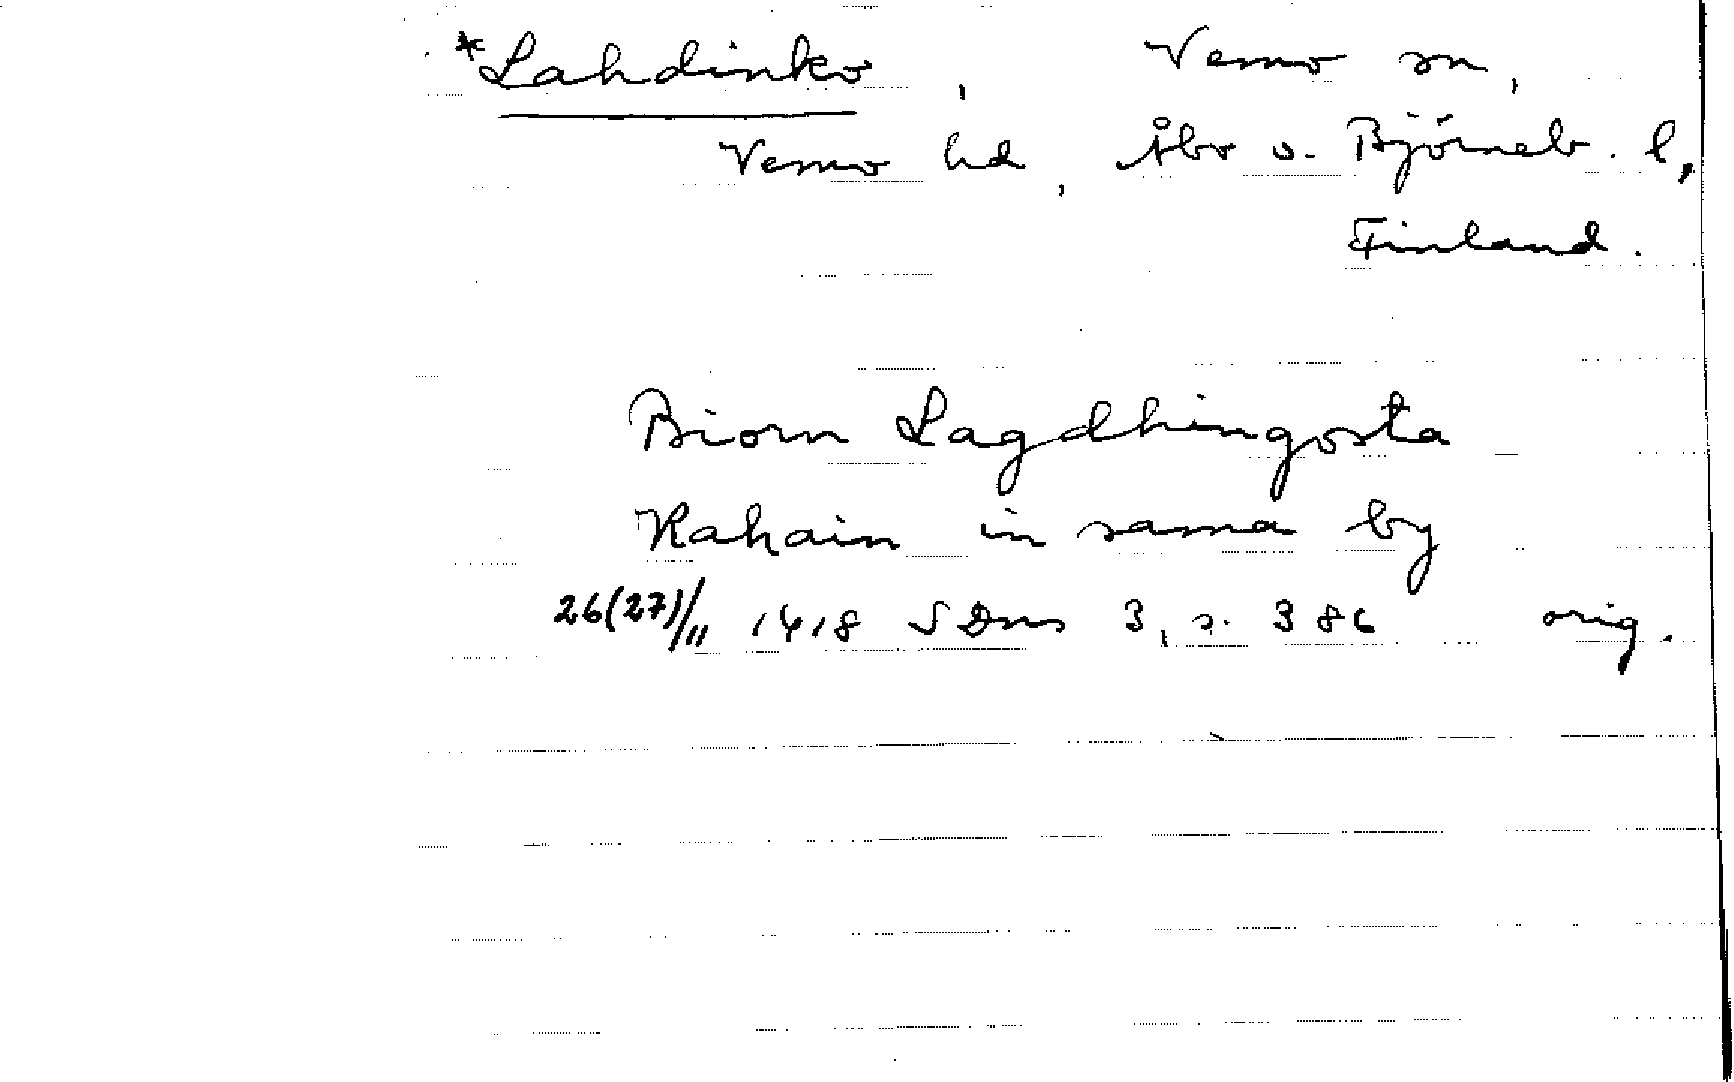 *Lahdinko, Vemo sn,
Vemo hd, Åbo o. Björneb. l,
Finland.
Biorn Lagdhingosta
Kahain in sama by
26(27)/11 1418 SDns 3, s. 386 orig.